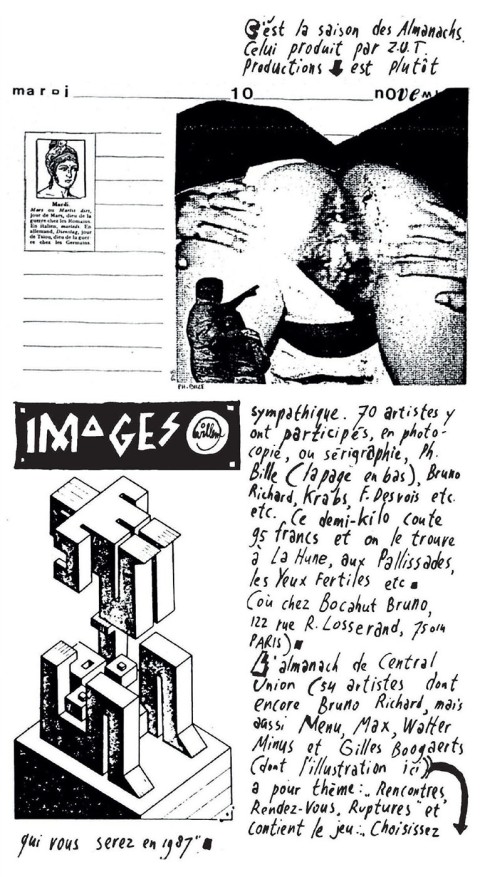 C'est la saison des Almanachs.
Celui produit par Z.U.T.
Productions est plutôt
mardi 10 novem
Mardi.
Mars ou Martis dies,
jour de Mars, dieu de la
guerre chez les Romains.
En italien, martedi. En
allemand, Dienstag, jour
de Tuiso, dieu de la guer-
re chez les Germains.
PH. BILLE
IMAGES
Willem
sympathique. 70 artistes y
ont participés, en photo-
copie, ou sérigraphie, Ph.
Bille (la page en bas), Bruno
Richard, Krabs, F. Desvois etc.
etc. Ce demi-kilo coute
95 francs et on le trouve
à La Hune, aux Pallissades,
les Yeux Fertiles etc
(où chez Bocahut Bruno,
122 rue R. Losserand, 75014
PARIS)
L'almanach de Central
Union (54 artistes dont
encore Bruno Richard, mais
aussi Menu, Max, Walter
Minus et Gilles Boogaerts
(dont l'illustration ici)
a pour thème: „Rencontres,
Rendez-Vous, Ruptures" et
contient le jeu: „Choisissez
qui vous serez en 1987"